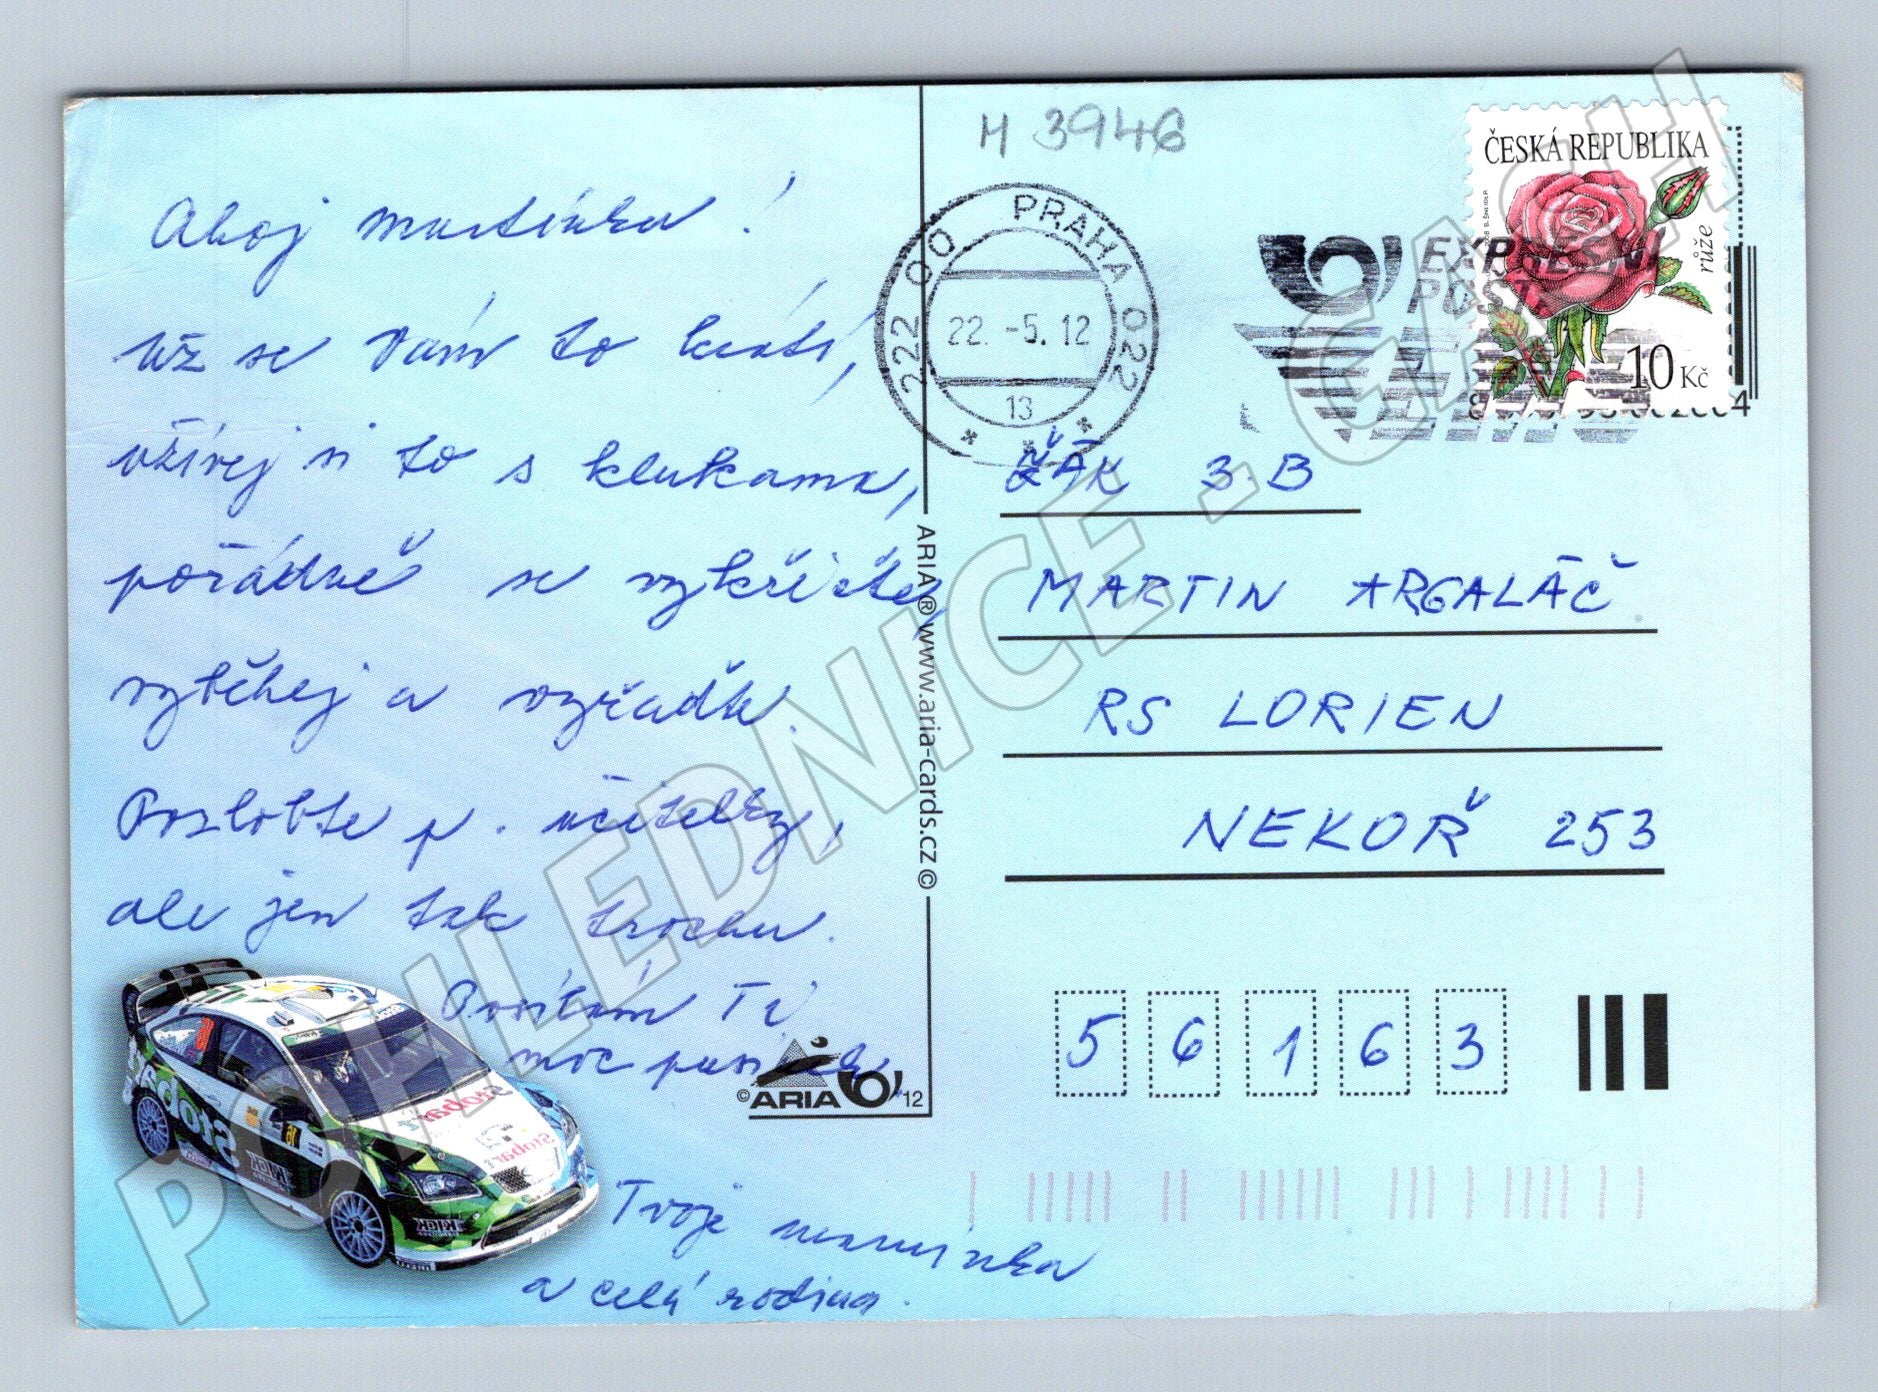 Ahoj Martínku!
Už se Vám to krátí,
užívej si to s klukama,
pořádně se vykřičte,
vyběhej a vyřaďte.
Pozlobte p. učitelky,
ale jen tak trochu.
Posílám Ti
moc pusinek.
Tvoje maminka
a celá rodina.
H 3946
222 00 PRAHA 022
22.-5.12
13
EXPRESNÍ
POŠTA
EMS
ČESKÁ REPUBLIKA
růže
10 Kč
ŽÁK 3.B
MARTIN ARGALÁČ
RS LORIEN
NEKOŘ 253
56163
ARIA® www.aria-cards.cz ©
© ARIA 12
Stobart
Stobart
Stobart
KICK
KICK
POHLEDNICE - GACH